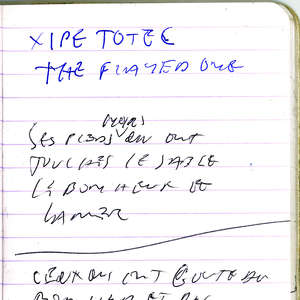 XIPE TOTEC
THE FLAYED ONE
SES PIEDS ONT
TOUCHÉS LE SABLE
LE BONHEUR DE
CEUX QUI ONT GOUTE AU